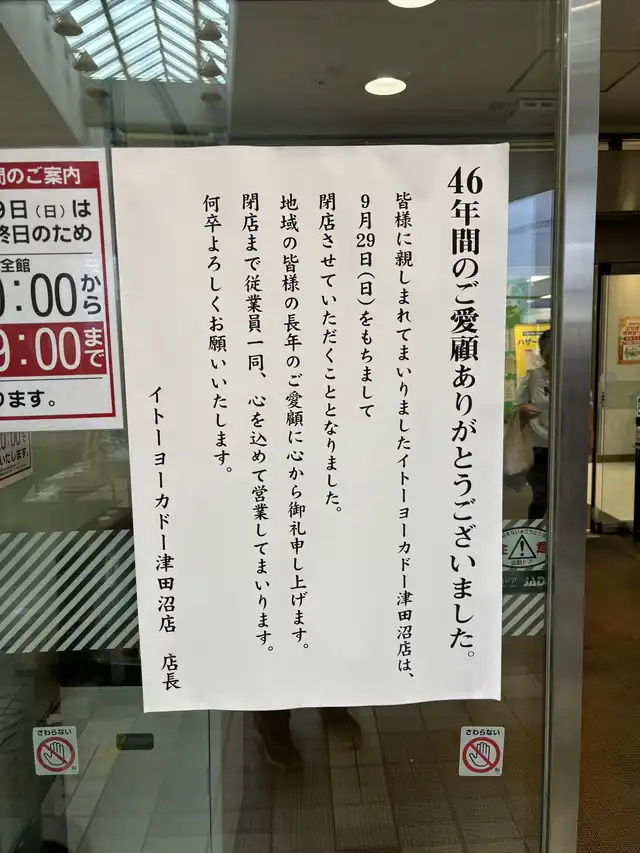 46年間のご愛顧ありがとうございました。
皆様に親しまれてまいりましたイトーヨーカドー津田沼店は、
9月29日(日)をもちまして
閉店させていただくこととなりました。
地域の皆様の長年のご愛顧に心から御礼申し上げます。
閉店まで従業員一同、心を込めて営業してまいります。
何卒よろしくお願いいたします。
イトーヨーカドー津田沼店 店長
間のご案内
9日(日)は
終日のため
全館
0:00から
9:00まで
ります。
いたします。
さわらない
さわらない
自動ドア
JAD